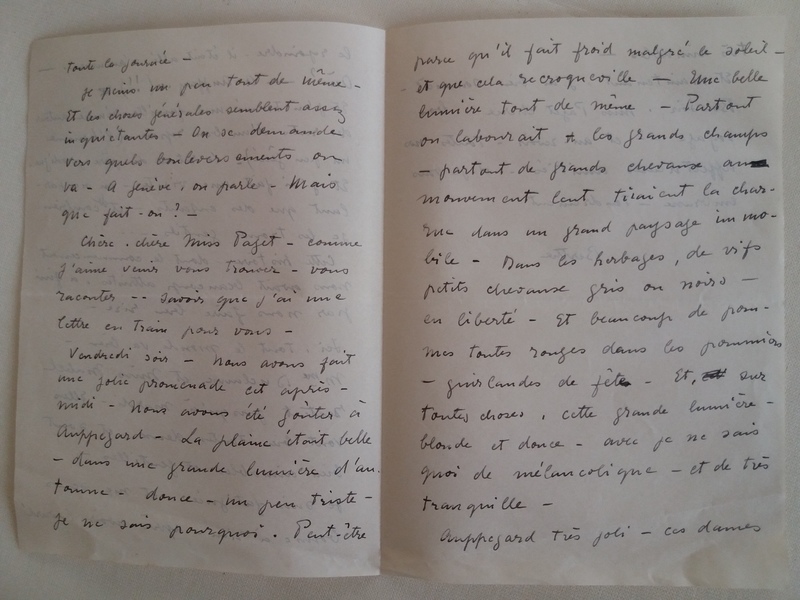 toute la journée —
Je peins un peu tout de même —
Et les choses générales semblent assez
inquiétantes — On se demande
vers quels bouleversements on
va — A Genève, on parle — Mais
que fait-on ? —
Chère, chère Miss Paget — comme
j'aime venir vous trouver — vous
raconter -- savoir que j'ai une
lettre en train pour vous —
Vendredi soir — Nous avons fait
une jolie promenade cet après-
midi — Nous avons été goûter à
Auppegard — La plaine était belle
— dans une grande lumière d'au-
tomne — douce — un peu triste —
je ne sais pourquoi. Peut-être
parce qu'il fait froid malgré le soleil —
et que cela recroqueville — Une belle
lumière tout de même — Partout
on labourait les grands champs
— partout de grands chevaux au
mouvement lent tiraient la char-
rue dans un grand paysage immo-
bile — Dans les herbages, de vifs
petits chevaux gris ou noirs —
en liberté — Et beaucoup de pom-
mes toutes rouges dans les pommiers
— guirlandes de fête — Et, sur
toutes choses, cette grande lumière —
blonde et douce — avec je ne sais
quoi de mélancolique — et de très
tranquille —
Auppegard très joli — ces dames